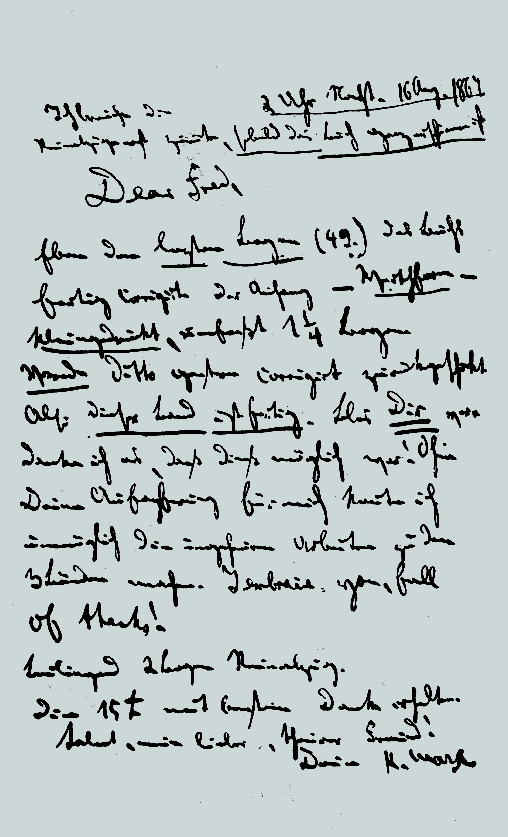 2 Uhr Nacht. 16 Aug. 1867
Ich brauche die
Reinabzüge zurück, sobald das Buch ganz erschienen ist
Dear Fred,
Eben den letzten Bogen (49.) des Buchs
fertig corrigirt. Der Anhang – Werthform –
kleingedruckt, umfasst 1 1/4 Bogen.
Vorrede ditto gestern corrigirt zurückgeschickt.
Also dieser Band ist fertig. Blos Dir ver
danke ich es, dass dies möglich war! Ohne
Deine Aufopferung für mich konnte ich
unmöglich die ungeheuren Arbeiten zu den
3 Bänden machen. I embrace you, full
of thanks!
Beiliegend 2 Bogen Reinabzug.
Die 15 £ mit bestem Dank erhalten.
Salut, mein lieber, theurer Freund!
Dein K. Marx